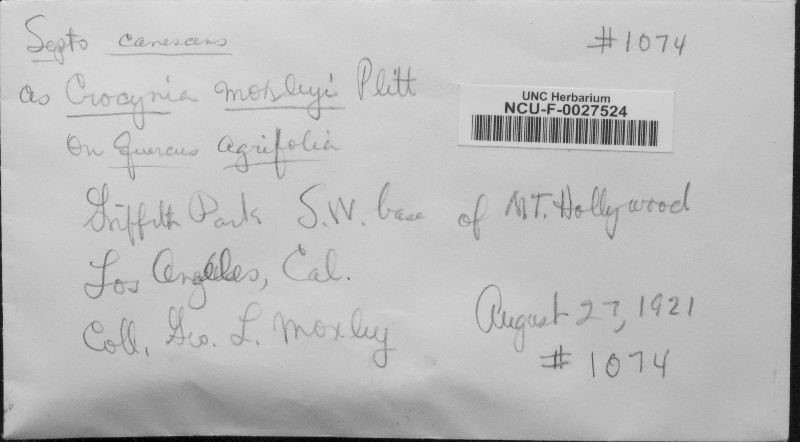 Septo canescens #1074
as Crocynia moxleyi Plitt
UNC Herbarium
NCU-F-0027524
on Quercus agrifolia
Griffith Park S.W. base of MT. Hollywood
Los Angeles, Cal.
Coll. Geo. L. Moxley August 27, 1921
#1074